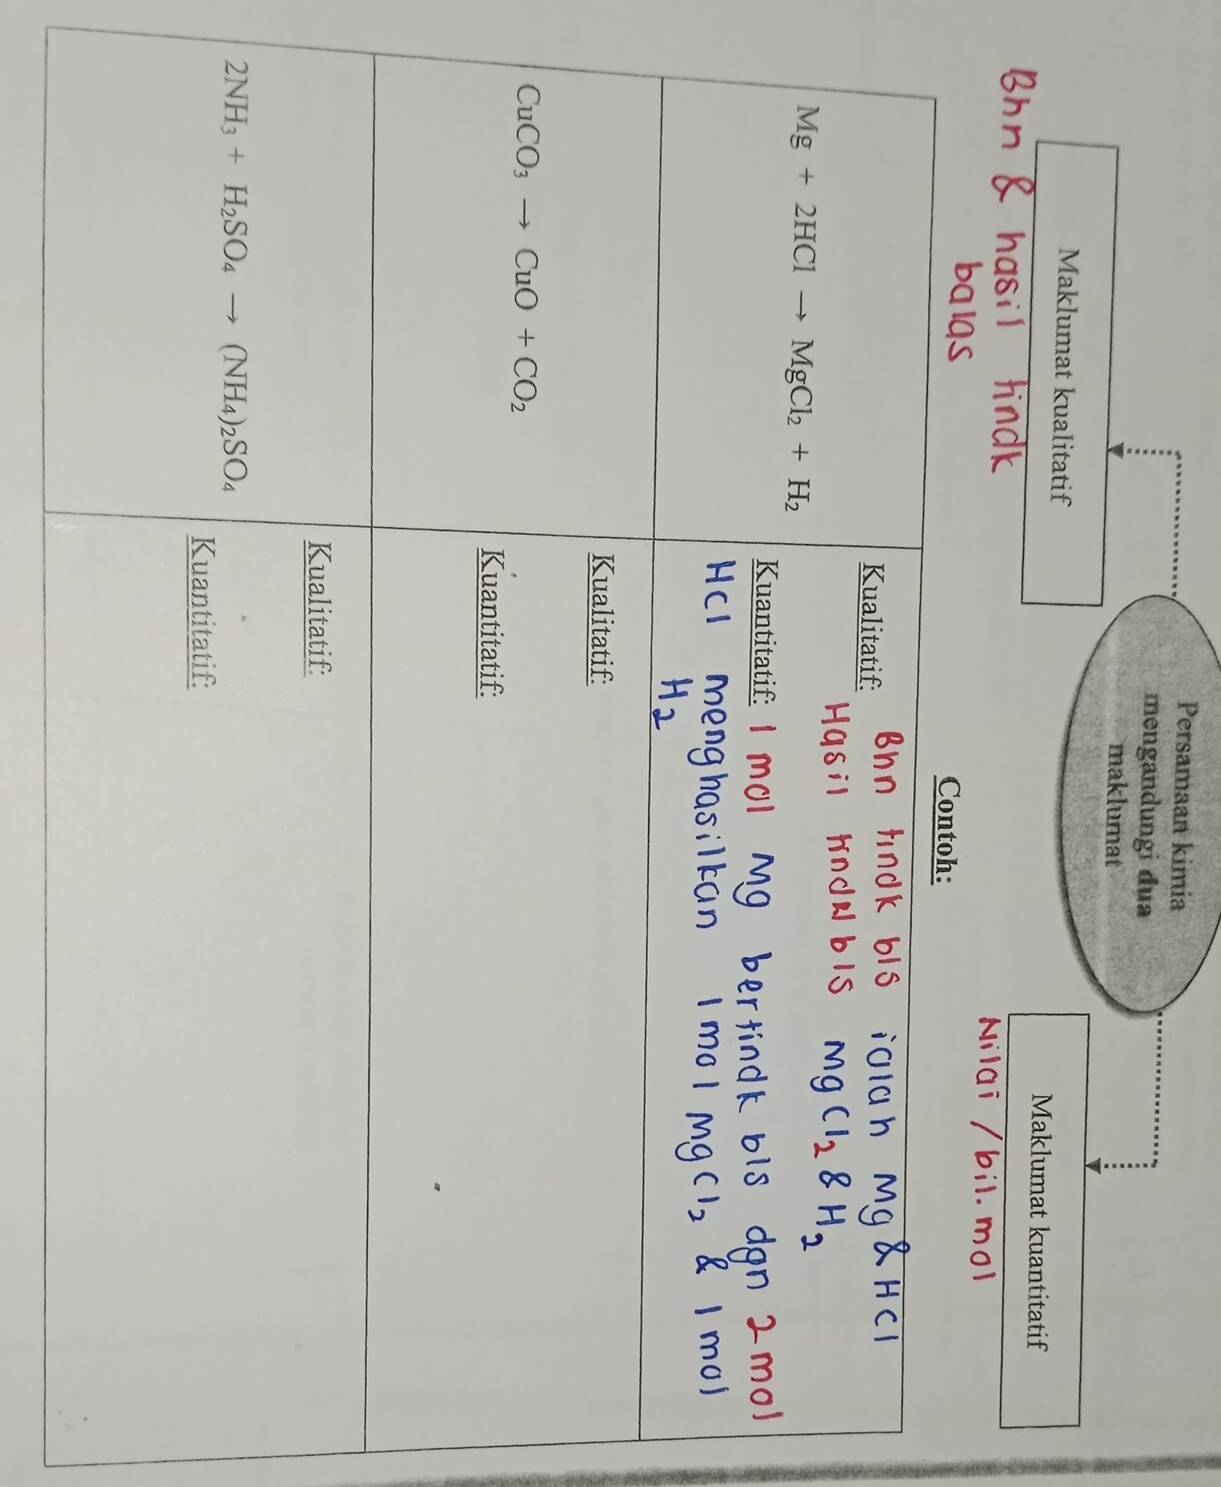 Persamaan kimia
mengandungi dua
maklumat
Maklumat kualitatif
Maklumat kuantitatif
Bhn & hasil tindk
balas
Nilai / bil. mol
Contoh:
Mg + 2HCl → MgCl₂ + H₂
Kualitatif: Bhn tindk bls ialah Mg & HCl
Hasil tindk bls MgCl₂ & H₂
Kuantitatif: 1 mol Mg bertindk bls dgn 2 mol
HCl menghasilkan 1 mol MgCl₂ & 1 mol
H₂
CuCO₃ → CuO + CO₂
Kualitatif:
Kuantitatif:
2NH₃ + H₂SO₄ → (NH₄)₂SO₄
Kualitatif:
Kuantitatif: